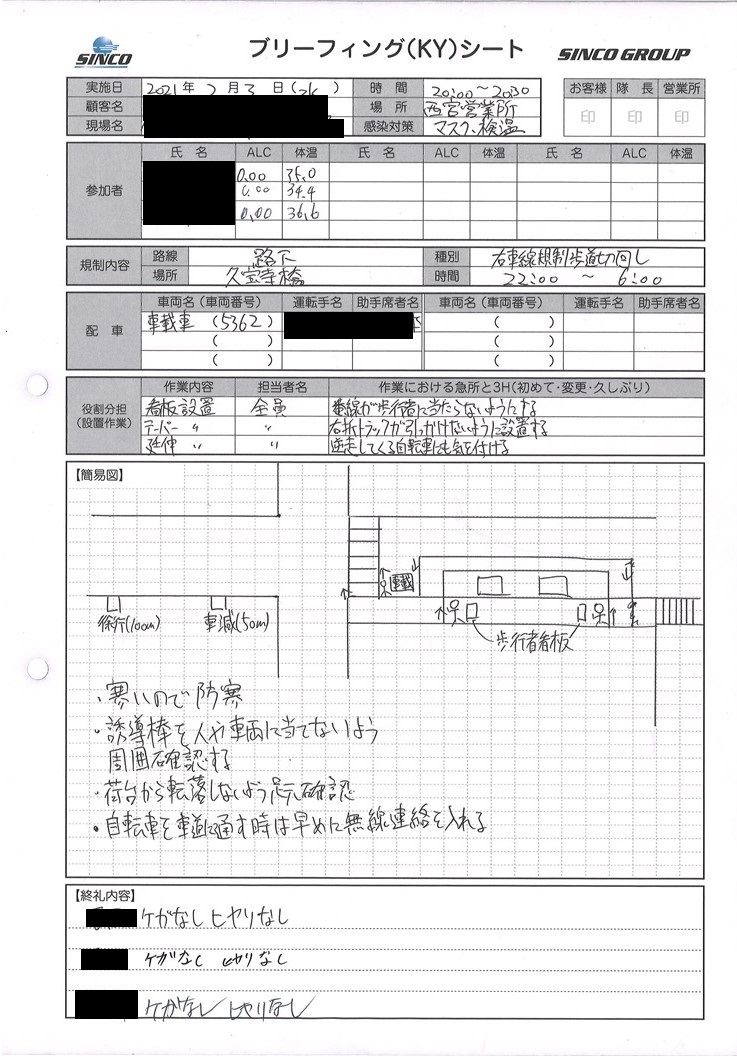 SINCO
ブリーフィング(KY)シート
SINCO GROUP
実施日 2021年 2月 3日(水) 時間 20:00~20:30
お客様 隊長 営業所
顧客名 場所 西宮営業所
印 印 印
現場名 感染対策 マスク、検温
参加者
氏名 ALC 体温 氏名 ALC 体温 氏名 ALC 体温
0.00 35.0
0.00 34.4
0.00 36.6
規制内容
路線 路下 種別 右車線規制歩道切回し
場所 久宝寺橋 時間 22:00 ~ 6:00
配車
車両名(車両番号) 運転手名 助手席者名 車両名(車両番号) 運転手名 助手席者名
車載車 (5362) ( )
( ) ( )
( ) ( )
役割分担
(設置作業)
作業内容 担当者名 作業における急所と3H(初めて・変更・久しぶり)
看板設置 全員 番線が歩行者に当たらないようにする
テーパー 〃 〃 右折トラックが引っかけないように設置する
延伸 〃 〃 逆走してくる自転車にも気を付ける
【簡易図】
車載
徐行(100m) 車減(50m)
歩行者看板
・寒いので防寒
・誘導棒を人や車両に当てないよう
周囲確認する
・荷台から転落しないよう足元確認
・自転車を車道に通す時は早めに無線連絡を入れる
【終礼内容】
ケガなし ヒヤリなし
ケガなし ヒヤリなし
ケガなし ヒヤリなし